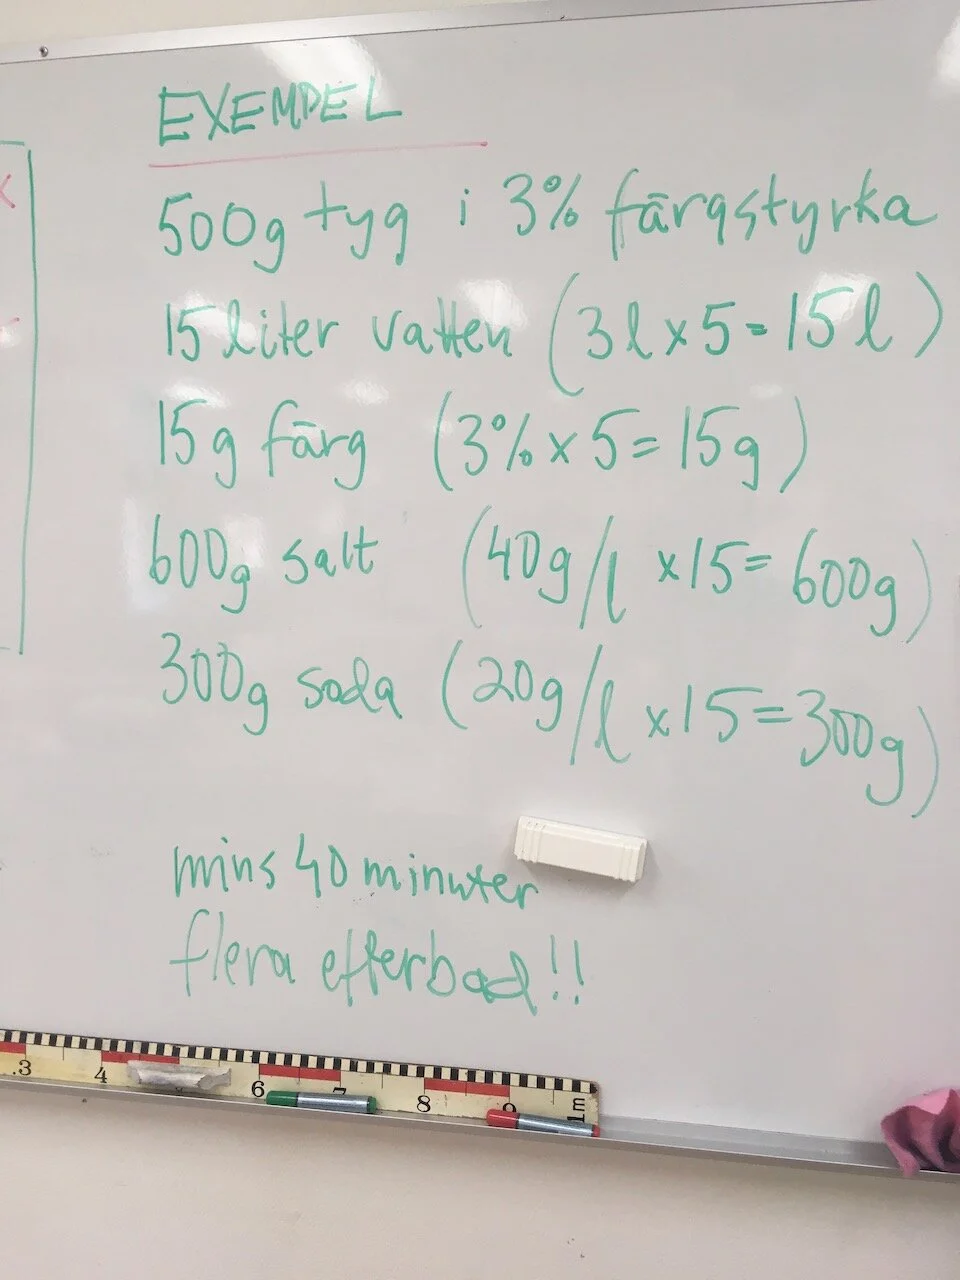 EXEMPEL
500g tyg i 3% färgstyrka
15 liter vatten (3l x 5 = 15 l)
15g färg (3% x 5 = 15g)
600g salt (40g/l x 15 = 600g)
300g soda (20g/l x 15 = 300g)
mins 40 minuter
flera efterbad!!
.3 4 6 7 8 9 1m